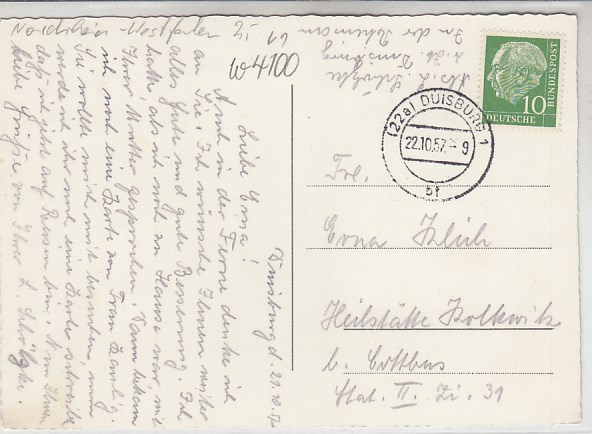 Nordrhein Westfalen 2,-
W 4100
Duisburg d. 21.10.57
Liebe Erna!
Auch in der Ferne denke ich
an Sie. Ich wünsche Ihnen weiter
alles Gute und gute Besserung. Ich
hatte, als ich noch zu Hause war, mit
Ihrer Mutter gesprochen. Dann bekam
ich noch eine Karte von Frau
Sie wollte mich mit besuchen, nun
werde ich ihr mal eine Karte schreiben
daß ich jetzt auf Reisen bin. Nun Ihnen
liebe Grüße von Ihrer L. Scholzke.
Abs. L. Scholzke
z. Zt. Duisburg
In der 61
DEUTSCHE
BUNDESPOST
10
(22a) DUISBURG 1
22.10.57.-9
bf
Frl.
Erna Klich
Heilstätte Kolkwitz
b. Cottbus
Stat. II. Zi. 31